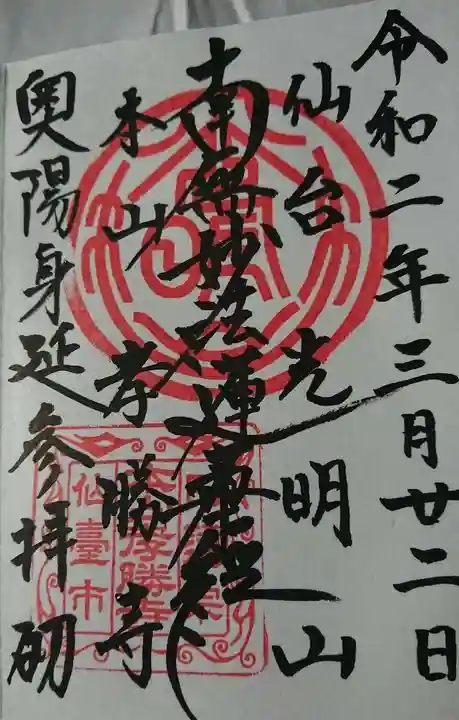 令和二年三月廿二日
仙台光明山
南無妙法蓮華経
本山孝勝寺
奥陽身延参拝砌
仙臺市